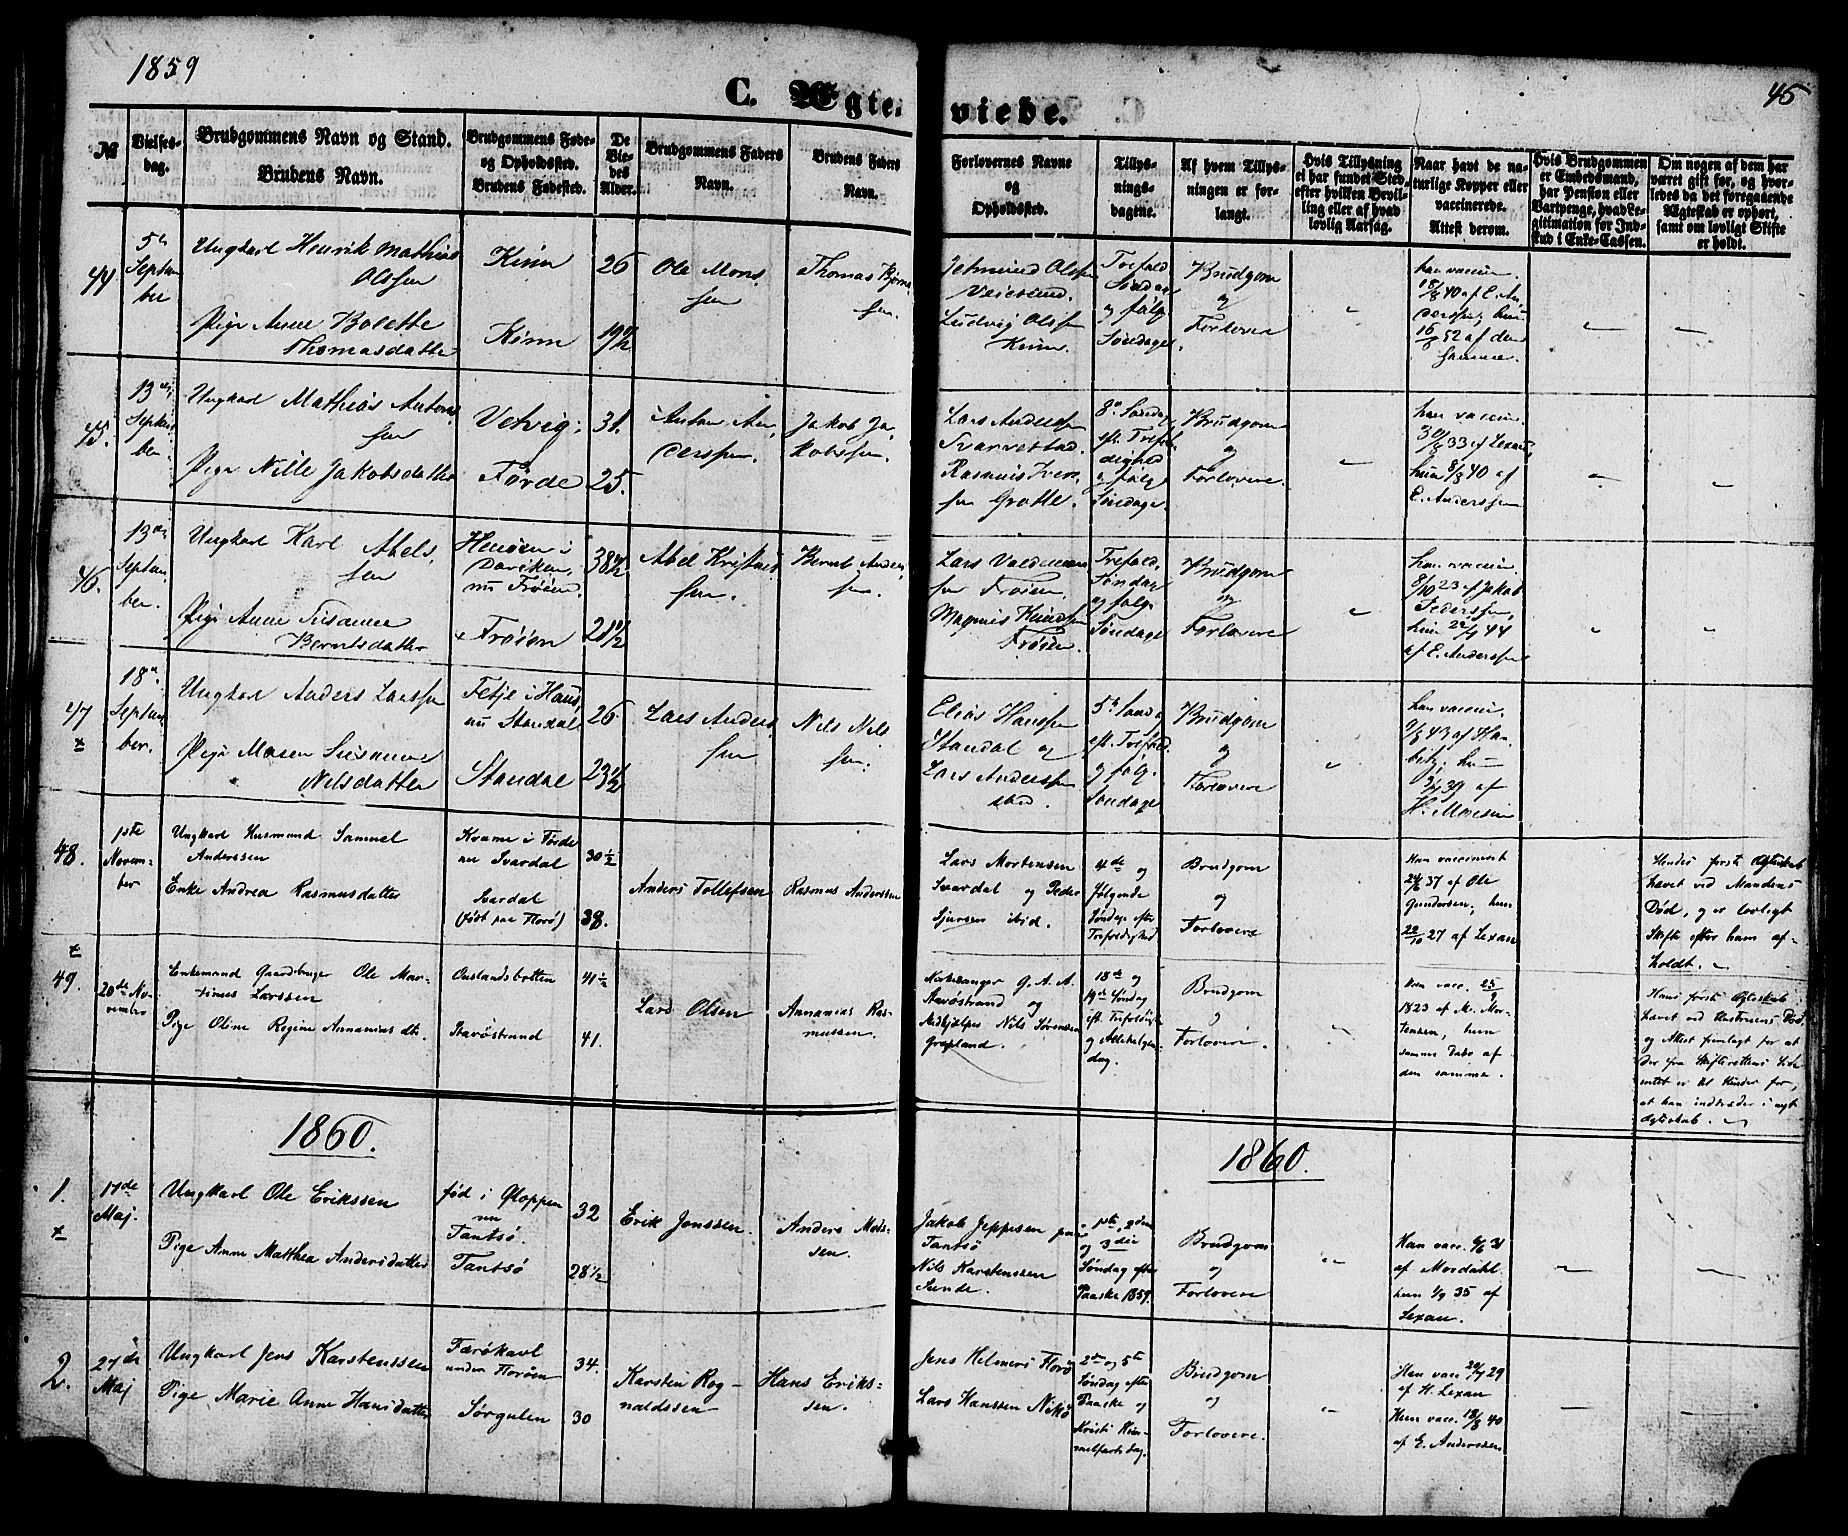 1859
C. Ægte. viede.
45
№
Vielses-
dag.
Brudgommens Navn og Stand.
Brudens Navn.
Brudgommens Føde-
og Opholdssted.
Brudens Fødested.
De
Vie-
des
Alder.
Brudgommens Faders
Navn.
Brudens Faders
Navn.
Forlovernes Navne
og
Opholdssted.
Tillys-
nings-
dagene.
Af hvem Tillys-
ningen er for-
langt.
Hvis Tillysning
ei har fundet Sted
efter hvilken Bevil-
ling eller af hvad
lovlig Aarsag.
Naar havt de na-
turlige Kopper eller
vaccinerede.
Attest derom.
Hvis Brudgommen
er Embedsmand,
har Pension eller
Vartpenge, hvad Le-
gitimation for Ind-
skud i Enke-Cassen.
Om nogen af dem har
været gift før, og hvor-
ledes da det foregaaende
Ægteskab er ophørt,
samt om lovligt Skifte
er holdt.
44
5te
Septem
ber
Ungkarl Henrik Mathias
Olssen
Pige Anne Bolette
Thomasdatter
Kinn
Kinn
26
19 1/2
Ole Mons
sen
Thomas Bjørn
sen.
Jetmund Olssen
Ludvig Olssen
Kinn.
Trefold.
Søndag
og følg.
Søndage
Brudgom
og
Forlovere
han vaccin.
18/8 40 af E. An,
derssen; hun
16/6 52 af den
samme.
45.
13de
Septem
ber.
Ungkarl Mathias Anton,
sen
Pige Nille Jakobsdatter
Vetvig.
Førde
31.
25.
Anton An,
derssen.
Jakob Ja,
kobssen.
Lars Anderssen
Svarvestad.
Rasmus Iver,
sen Grotle.
8de Søndag
eft. Trefol,
dighed
og følg.
Søndage.
Brudgom
og
Forlovere.
han vaccin.
30/8 33 af Lexau
hun 8/8 40 af
E. Anderssen
46.
13de
Septem,
ber.
Ungkarl Karl Abels,
sen
Pige Anne Susanne
Berntsdatter
Henøen i
Daviken,
nu Frøien.
Frøien
38 1/2
21 1/2
Abel Kristens
sen.
Bernt Anders,
sen.
Lars Valdemar
sen Frøien,
Magnus
Frøien.
Trefold.
Søndag
og følg.
Søndage
Brudgom
og
Forlovere
han vaccin.
8/10 23 af Jakob
Pederssen,
hun 22/9 44
af E. Anderssen
47
18de
Septem
ber.
Ungkarl Anders Larssen
Pige Maren Susanne
Nilsdatter
Fetje i Haus,
nu Standal
Standal
26
23 1/2
Lars Anders,
sen
Nils Nils
sen.
Elias Hanssen
Standal og
Lars Anderssen
ibid.
5te Søndag
eft. Trefold.
og følg.
Søndage
Brudgom
og
Forlovere
han vaccin.
9/8 43 af
hun
39 af
48.
1ste
Novem-
ber
Ungkarl Husmand Samuel
Anderssen
Enke Andrea Rasmusdatter
Kvame i Førde
nu Svardal
Svardal
(født paa Florø)
30 1/2
38.
Anders Tollefsen
Rasmus Anderssen
Lars Mortensen
Svardal og Peder
Sjursen ibid.
4de og
følgende
Søndage efter
Trefoldighed
Brudgom
og
Forlovere
Han vaccineret
24/6 37 af Ole
Gundersen; hun
22/10 27 af Lexau
Hendes første Ægteskab
hævet ved Mandens
Død, og er lovligt
Skifte efter ham af-
holdt.
49.
20de No-
vembr
Enkemand Gaardbruger Ole Mar-
tinus Larssen
Pige Oline Regine Annanias dtr.
Ouslandsbotten
Stavøstrand
41 1/2
41.
Lars Olsen
Annanias Ras-
mussen.
Kirkesanger G. A. A.
Stavøstrand og
Medhjælper Nils Sørensen
Grepland.
18de og
19de Søndag
eft. Trefoldigh.
og Allehelgen-
dag.
Brudgom
og
Forlovere.
Han vacc. 25/9
1823 af M. Mor-
tensen, hun
samme Dato af
den samme.
Hans første Ægteskab
hævet ved Hustruens Død,
og Attest fremlagt for at
der fra Skifterettens Side
intet er til Hinder for,
at han indtræder i nyt
Ægteskab.
1860.
1860.
1.
17de
Maj.
Ungkarl Ole Erikssen
Pige Anne Matthea Andersdatter
fød i Gloppen
nu
Tansø.
Tansø
32
28 1/2
Erik Jonssen.
Anders Mads-
sen.
Jakob Jeppesen paa
Tansø
Nils Karstenssen
Sunde.
1ste, 2den
og 3die
Søndag efter
Paaske 1859.
Brudgom
og
Forlovere
Han vacc. 6/6 31
af Mordahl.
hun 1/9 35 af
Lexau.
2.
27de
Maj
Ungkarl Jens Karstenssen
Pige Marie Anne Hansdatter
Færøkavl
under Florøen
Sørgulen
34.
30
Karsten Rog-
naldssen
Hans Eriks-
sen.
Jens Helmers Florø
Lars Hanssen Nekø
2de og 5te
Søndag efter
Paaske og
Kristi Him-
melfartsdag.
Brudgom
og
Forlovere.
Han vacc 20/9 29
af H. Lexau
Hun vacc. 18/8 40
af E. Anderssen